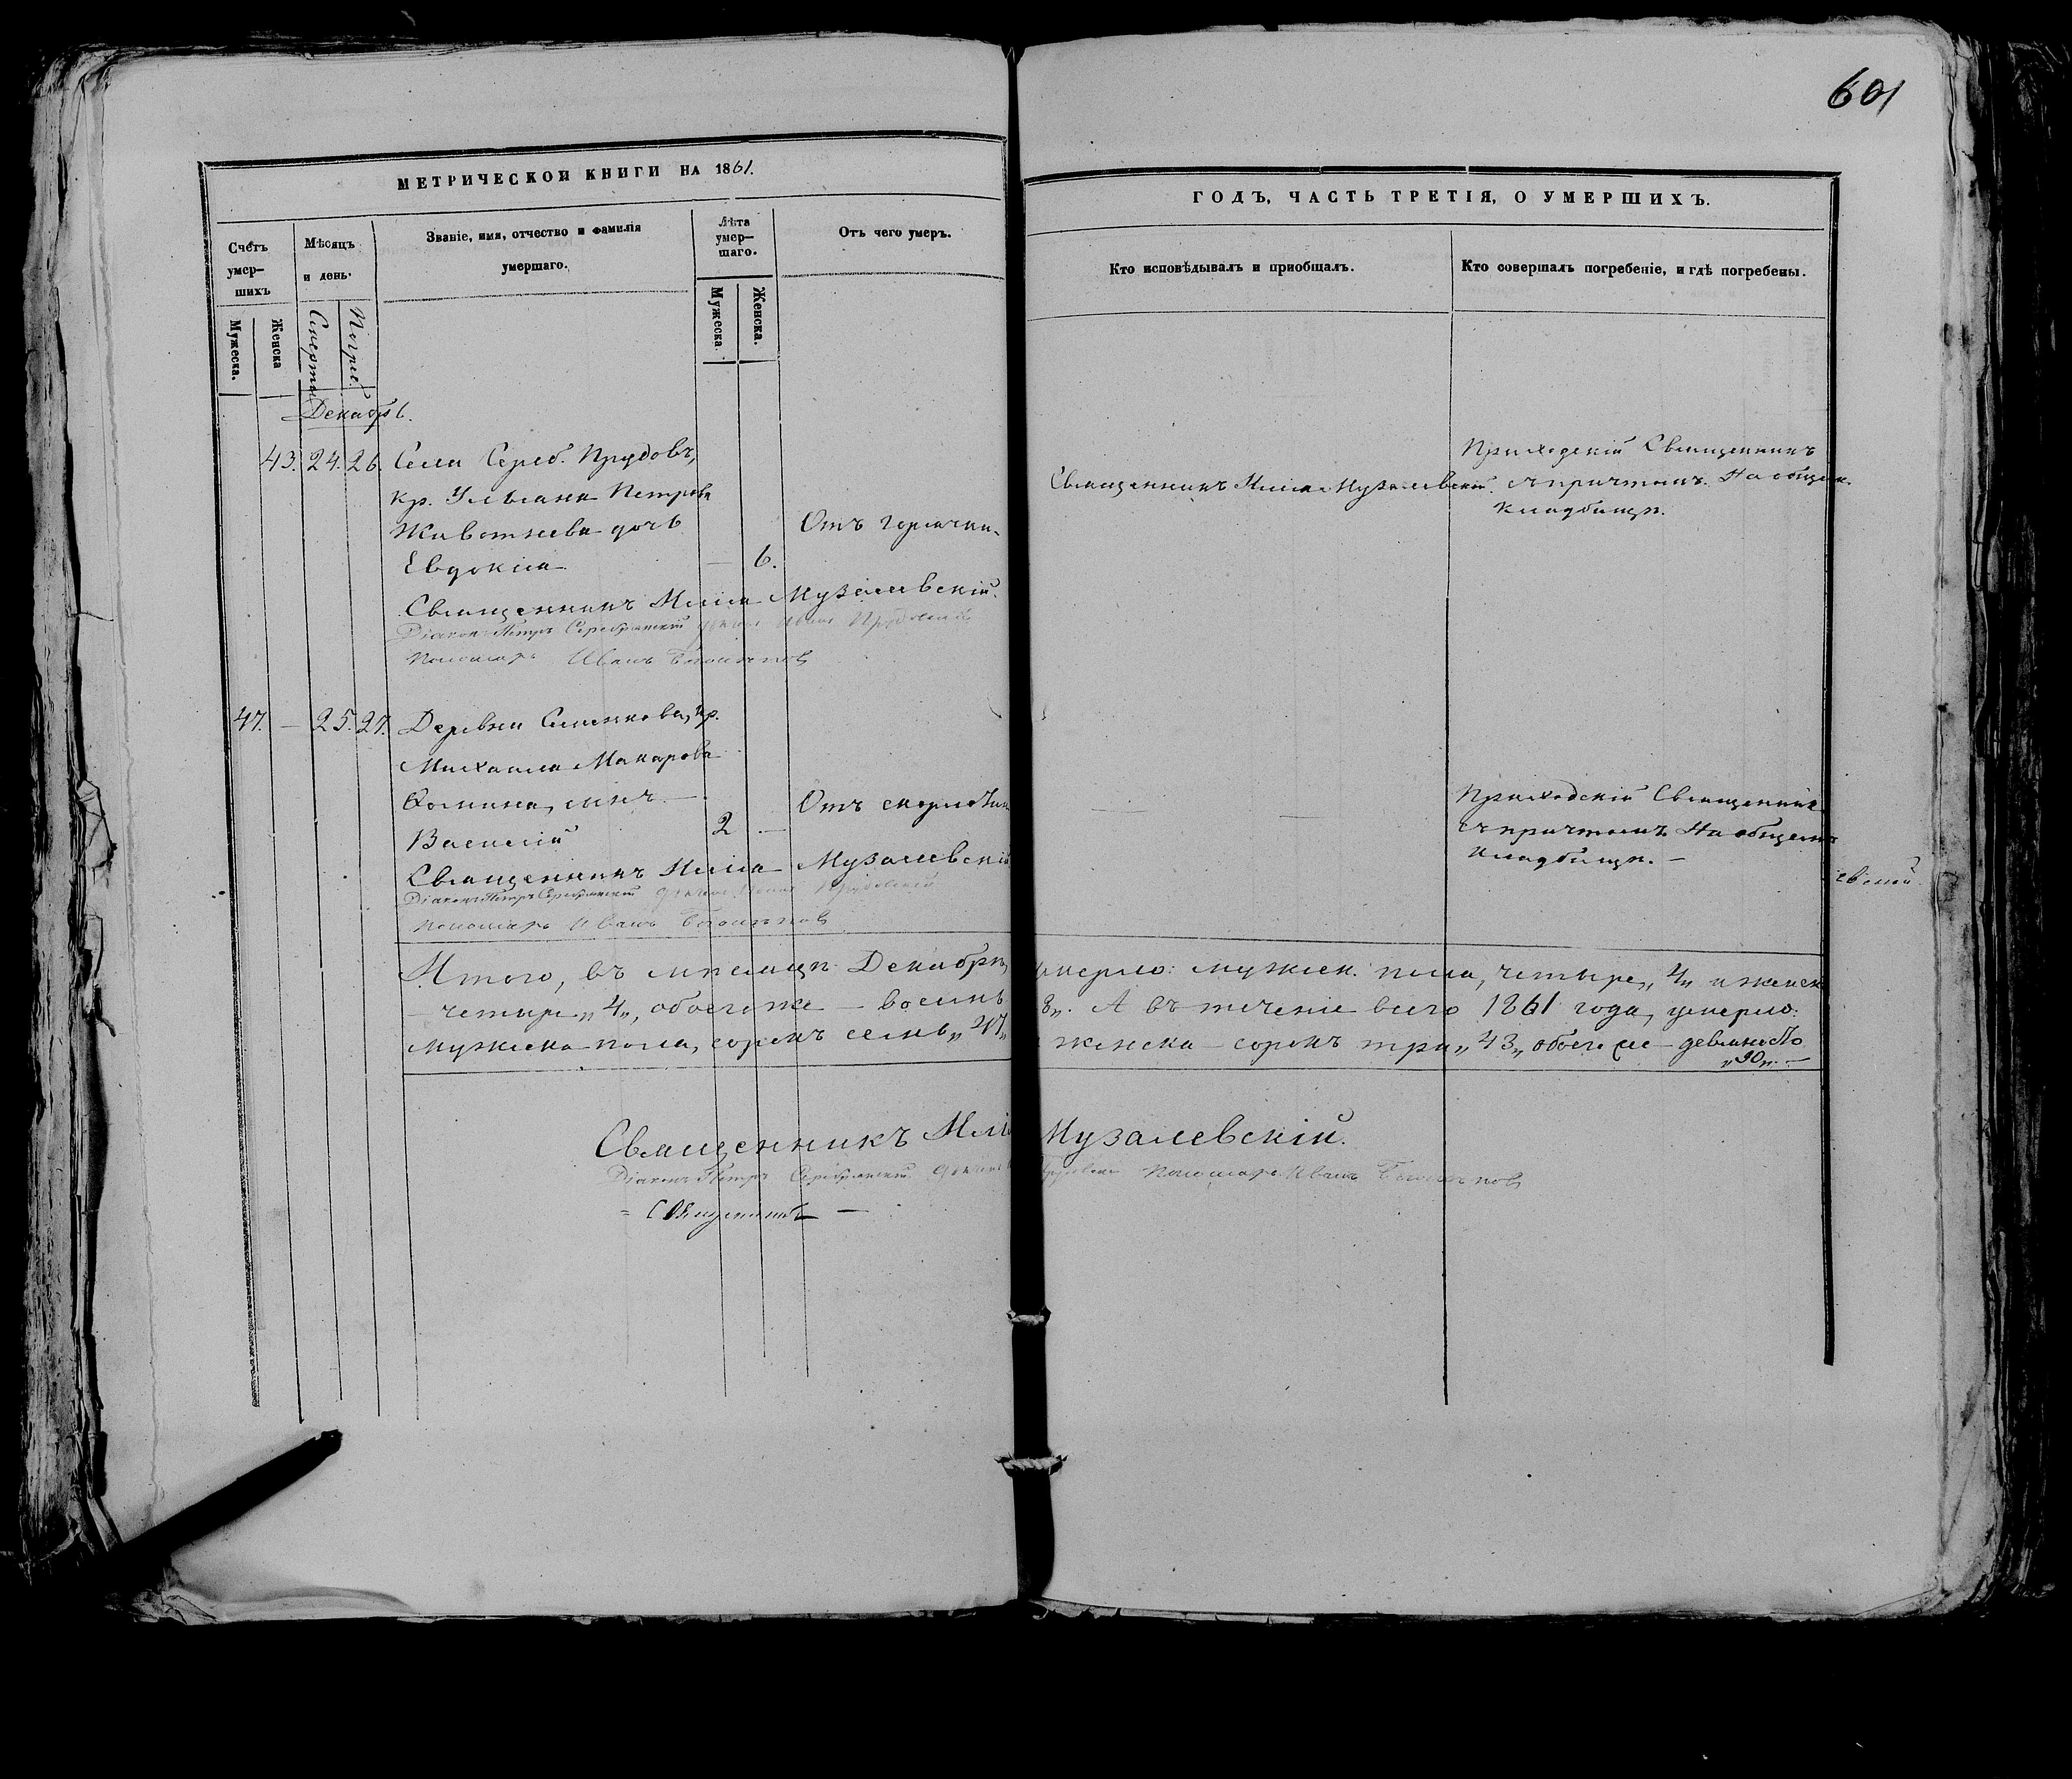 601
МЕТРИЧЕСКОЙ КНИГИ НА 1861.
Счетъ умер-шихъ
Мужеска.
Женска
Мѣсяцъ и день.
Смерти
Погреб.
Званіе, имя, отчество и фамилія умершаго.
Лѣта умер-шаго.
Мужеска.
Женска.
Отъ чего умеръ.
Декабрь.
43. 24. 26. Села Сереб. Прудовъ,
кр. Ульяна Петрова
Животнева дочь
Евдокія — 6. Отъ горячки.
Священникъ Илія Музалевскій.
Діаконъ Петръ Серебрянскій
Пономарь Иванъ
47. — 25. 27. Деревни кр.
Михаила Макарова
Ѳомина, сынъ —
Василій 2 — Отъ скорлотины
Священникъ Илія Музалевскій
Діаконъ Петръ Серебрянскій
Пономарь Иванъ
ГОДЪ, ЧАСТЬ ТРЕТІЯ, О УМЕРШИХЪ.
Кто исповѣдывалъ и пріобщалъ.
Кто совершалъ погребеніе, и гдѣ погребены.
Священникъ Илія Музалевскій.
Приходскій Священникъ
съ причтомъ. На общем.
кладбищѣ.
Приходскій Священникъ
съ причтомъ. На общемъ
кладбищѣ. —
Итого, въ мѣсяцѣ Декабрѣ, умерло: мужеск. пола, четыре „4„ и женск.
— четыре „4„, обоего же — восемь „8„. А въ теченіе всего 1861 года, умерло:
мужеска пола, сорокъ семь „47„ женска — сорокъ три „43„ обоего же — девяносто
„90„. —
Священникъ Илія Музалевскій.
Діаконъ Петръ Серебрянскій Пономарь Иванъ